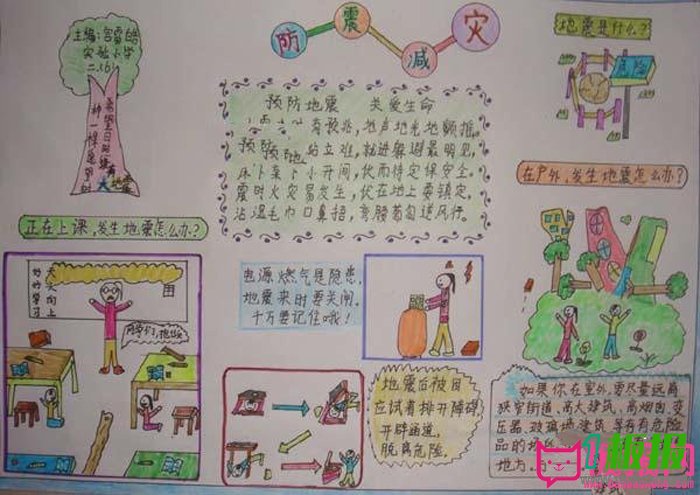 主编:宫雷皓
实验小学
二.3.6
防震减灾
地震是什么?
危险
预防地震 关爱生命
有预兆,地声地光地颤摇。
站立难,就近躲避最明见,
床下桌下小开间,伏而待定保安全。
震时火灾易发生,伏在地上要镇定。
沾湿毛巾口鼻捂,弯腰匍匐逆风行。
正在上课,发生地震怎么办?
好好学习
天天向上
同学们,
电源燃气是隐患,
地震来时要关闸。
千万要记住哦!
在户外,发生地震怎么办?
地震后被困
应试着排开障碍
开辟通道,
脱离危险。
如果你在室外,要尽量远离
狭窄街道,高大建筑,高烟囱,变
压器,玻璃墙建筑,等有有危险
品的
地方